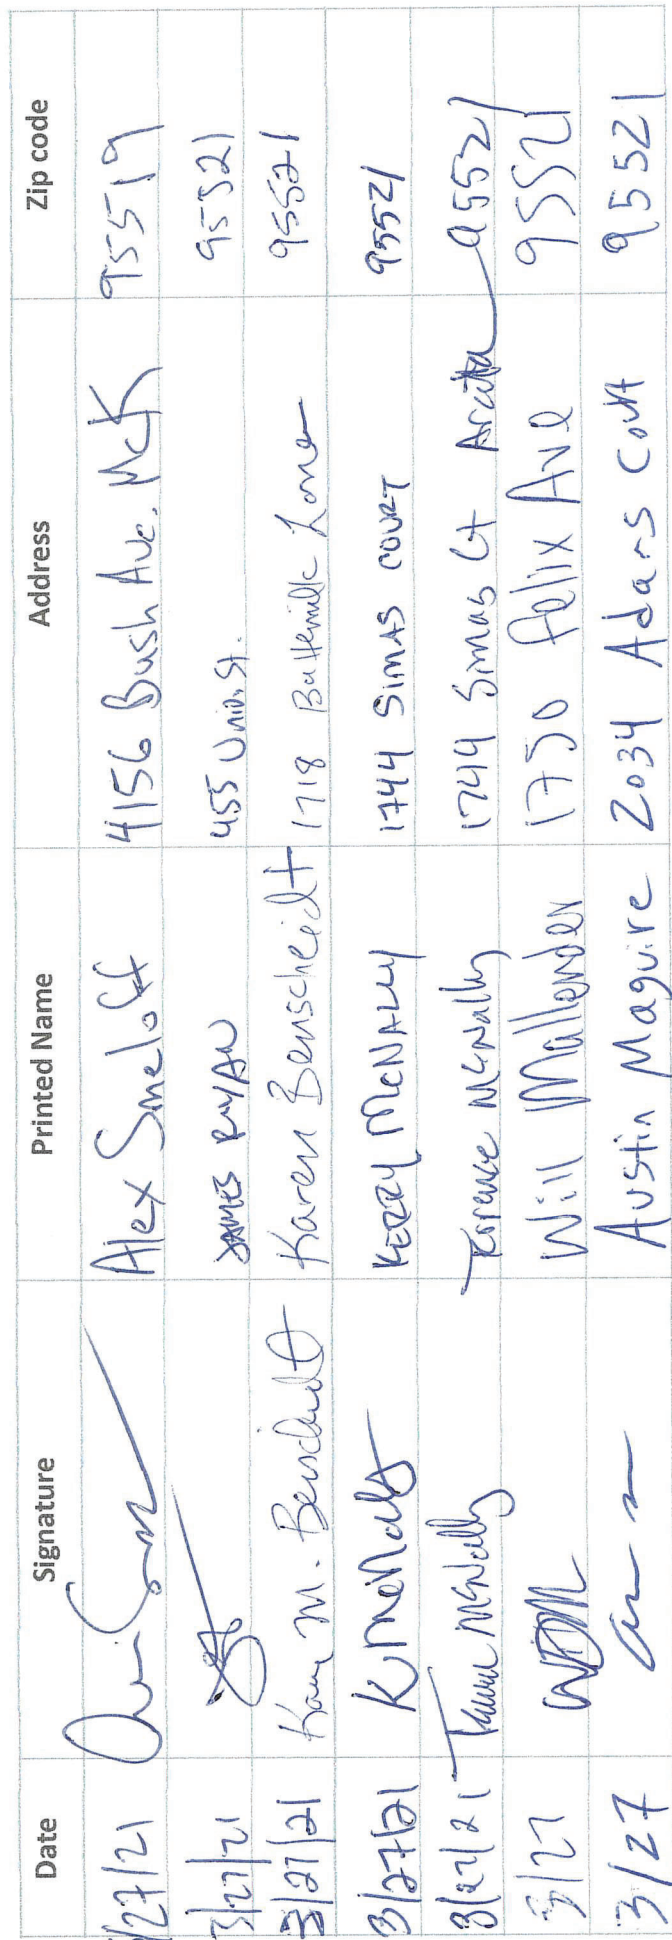 Date Signature Printed Name Address Zip code
/27/21 Alex Smeloff 4156 Bush Ave. McK 95519
3/27/21 JAMES RYAN 455 Union St. 95521
3/27/21 Karen M. Benscheidt Karen Benscheidt 1718 Buttermilk Lane 95521
3/27/21 K McNally KERRY McNALLY 1744 SIMAS COURT 95521
3/27/21 Terence McNally Terence McNally 1744 Simas Ct Arcata 95521
3/27 Will Mallender 1750 Felix Ave 95521
3/27 Austin Maguire 2034 Adams Court 95521